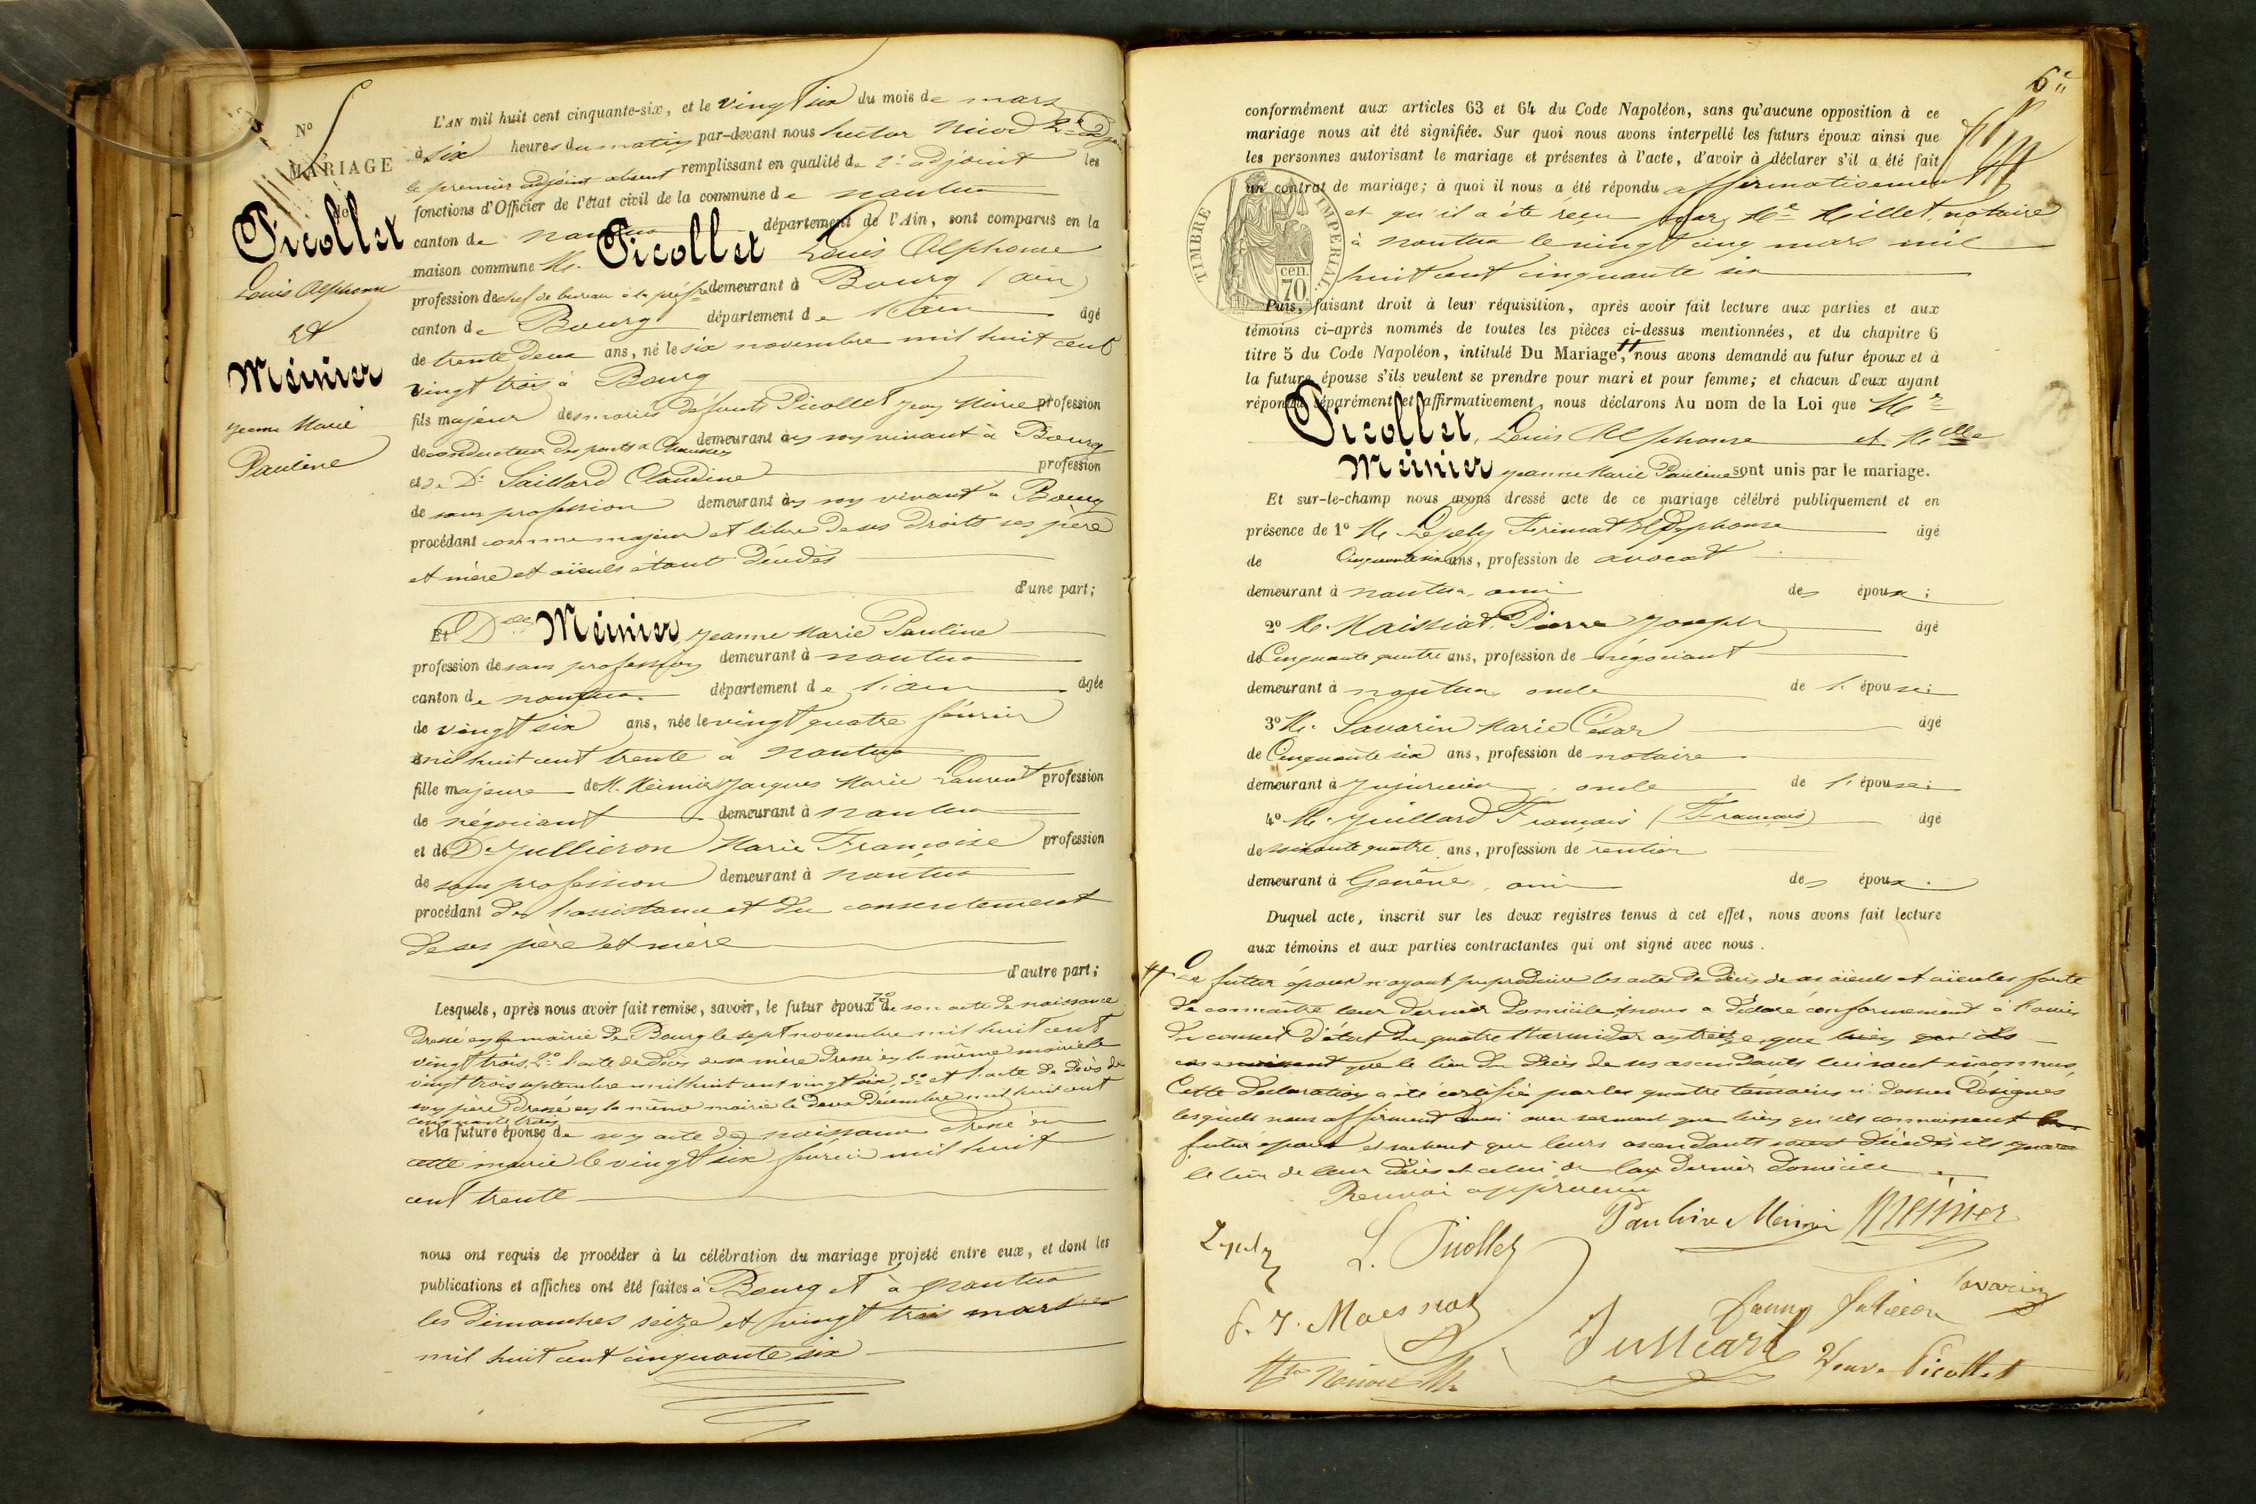 Nº 5
MARIAGE
de
Picollet
Louis Alphonse
et
Meinier
Jeanne Marie
Pauline
L'AN mil huit cent cinquante-six, et le vingt six du mois de mars
à six heures du matin par-devant nous hector Nicod 2e adjoint
le premier adjoint absent remplissant en qualité de 2e adjoint les
fonctions d'Officier de l'état civil de la commune de nantua
canton de nantua département de l'Ain, sont comparus en la
maison commune Mr. Picollet Louis Alphonse
profession de chef de bureau à la préfre demeurant à Bourg (ain)
canton de Bourg département de l'ain âgé
de trente deux ans, né le six novembre mil huit cent
vingt trois à Bourg
fils majeur des mariés défunts Picollet Jean Marie profession
de conducteur des ponts et chaussées demeurant de son vivant à Bourg
et de De Saillard Claudine profession
de sans profession demeurant de son vivant à Bourg
procédant comme majeur et libre de ses droits ses père
et mère et aïeuls étant décédés
d'une part;
Et Dlle Meinier Jeanne Marie Pauline
profession de sans profession demeurant à nantua
canton de nantua département de l'ain âgée
de vingt six ans, née le vingt quatre février
mil huit cent trente à nantua
fille majeure de M. Meinier Jacques Marie Laurent profession
de négociant demeurant à nantua
et de De Jullieron Marie Françoise profession
de sans profession demeurant à nantua
procédant de l'assistance et du consentement
de ses père et mère
d'autre part;
Lesquels, après nous avoir fait remise, savoir, le futur époux 1º de son acte de naissance
dressé en la mairie de Bourg le sept novembre mil huit cent
vingt trois, 2º l'acte de décès de sa mère dressé en la même mairie le
vingt trois septembre mil huit cent vingt six, 3º et l'acte de décès de
son père dressé en la même mairie le deux décembre mil huit cent
cinquante trois
et la future épouse de son acte de naissance dressé en
cette mairie le vingt six février mil huit
cent trente
nous ont requis de procéder à la célébration du mariage projeté entre eux, et dont les
publications et affiches ont été faites à Bourg et à nantua
les dimanches seize et vingt trois mars
mil huit cent cinquante six
6
conformément aux articles 63 et 64 du Code Napoléon, sans qu'aucune opposition à ce
mariage nous ait été signifiée. Sur quoi nous avons interpellé les futurs époux ainsi que
les personnes autorisant le mariage et présentes à l'acte, d'avoir à déclarer s'il a été fait
un contrat de mariage; à quoi il nous a été répondu affirmativement
et qu'il a été reçu par Me Millet, notaire
à nantua le vingt cinq mars mil
huit cent cinquante six
TIMBRE IMPERIAL
cen.
70
Puis, faisant droit à leur réquisition, après avoir fait lecture aux parties et aux
témoins ci-après nommés de toutes les pièces ci-dessus mentionnées, et du chapitre 6
titre 5 du Code Napoléon, intitulé Du Mariage, nous avons demandé au futur époux et à
la future épouse s'ils veulent se prendre pour mari et pour femme; et chacun d'eux ayant
répondu séparément et affirmativement, nous déclarons Au nom de la Loi que Mr
Picollet, Louis Alphonse et Melle
Meinier Jeanne Marie Pauline sont unis par le mariage.
Et sur-le-champ nous avons dressé acte de ce mariage célébré publiquement et en
présence de 1º M. Lepely âgé
de Cinquante six ans, profession de avocat
demeurant à nantua, ami des époux;
2º M. Maissiat Pierre Joseph âgé
de Cinquante quatre ans, profession de négociant
demeurant à nantua oncle de l'épouse;
3º M. Savarin Marie César âgé
de Cinquante six ans, profession de notaire
demeurant à Jujurieux, oncle de l'épouse;
4º M. Juillard François (François) âgé
de soixante quatre ans, profession de rentier
demeurant à Genève, ami des époux.
Duquel acte, inscrit sur les deux registres tenus à cet effet, nous avons fait lecture
aux témoins et aux parties contractantes qui ont signé avec nous.
Le futur époux n'ayant pu produire les actes de décès de ses aïeuls et aïeules faute
de connaître leur dernier domicile, nous a déclaré conformément à l'avis
du conseil d'état du quatre thermidor an treize que
que le lieu du décès de ses ascendants lui sont inconnus,
Cette déclaration a été certifiée par les quatre témoins ci dessus désignés
lesquels nous affirment aussi avec serment que bien qu'ils connaissent le
futur époux et sachent que leurs ascendants sont décédés ils
le lieu de leur décès et celui de leur dernier domicile.
Renvoi approuvé
Lepely L. Picollet Pauline Meinier Meinier
P. J. Maissiat Juillard Fanny Julieron Savarin
Veuve Picollet